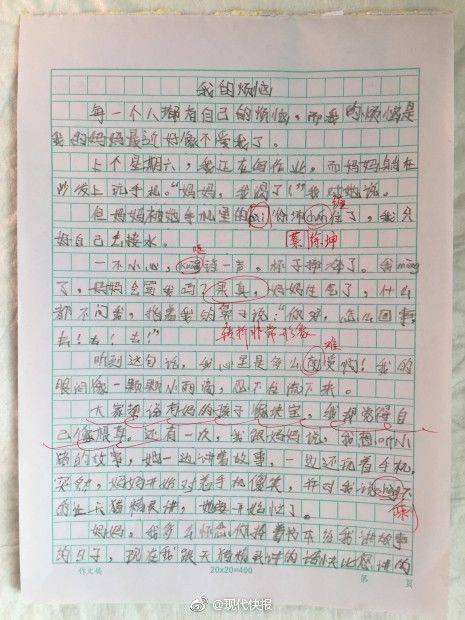 我的烦恼
每一个人都有自己的烦恼,而我的烦恼是
我的妈妈最近好像不爱我了。
上个星期六,我正在写作业,而妈妈躺在
沙发上玩手机。“妈妈,我渴了!”我对她说。
但妈妈被她手机里的 住了,我只
缠
好自己去接水。
蔡徐坤
一不小心, 一声,杯子摔碎了。我 mìng
了,妈妈会骂我吗?果真,妈妈生气了,什么
都不问我,指着我的鼻子说:“你呀,怎么回事,
去!去!去!”
转折非常形象
听到这句话,我心里是多么 受啊!我的
难
眼泪像一颗颗小雨滴,忍不住流下来。
大家都说有妈的孩子像块宝,我却觉得自
己像根草。还有一次,我跟妈妈说,我想听小
猪的故事,她一边讲着故事,一边还看着手机,
突然,妈妈开始对着手机傻笑,并对我说
的让天猫精灵讲,她
妈妈,我多么怀念你捧着书本给我讲故事
的日子,现在我跟天猫精灵讲的话快比您讲的
作文稿
20×20=400
第 页
@现代快报